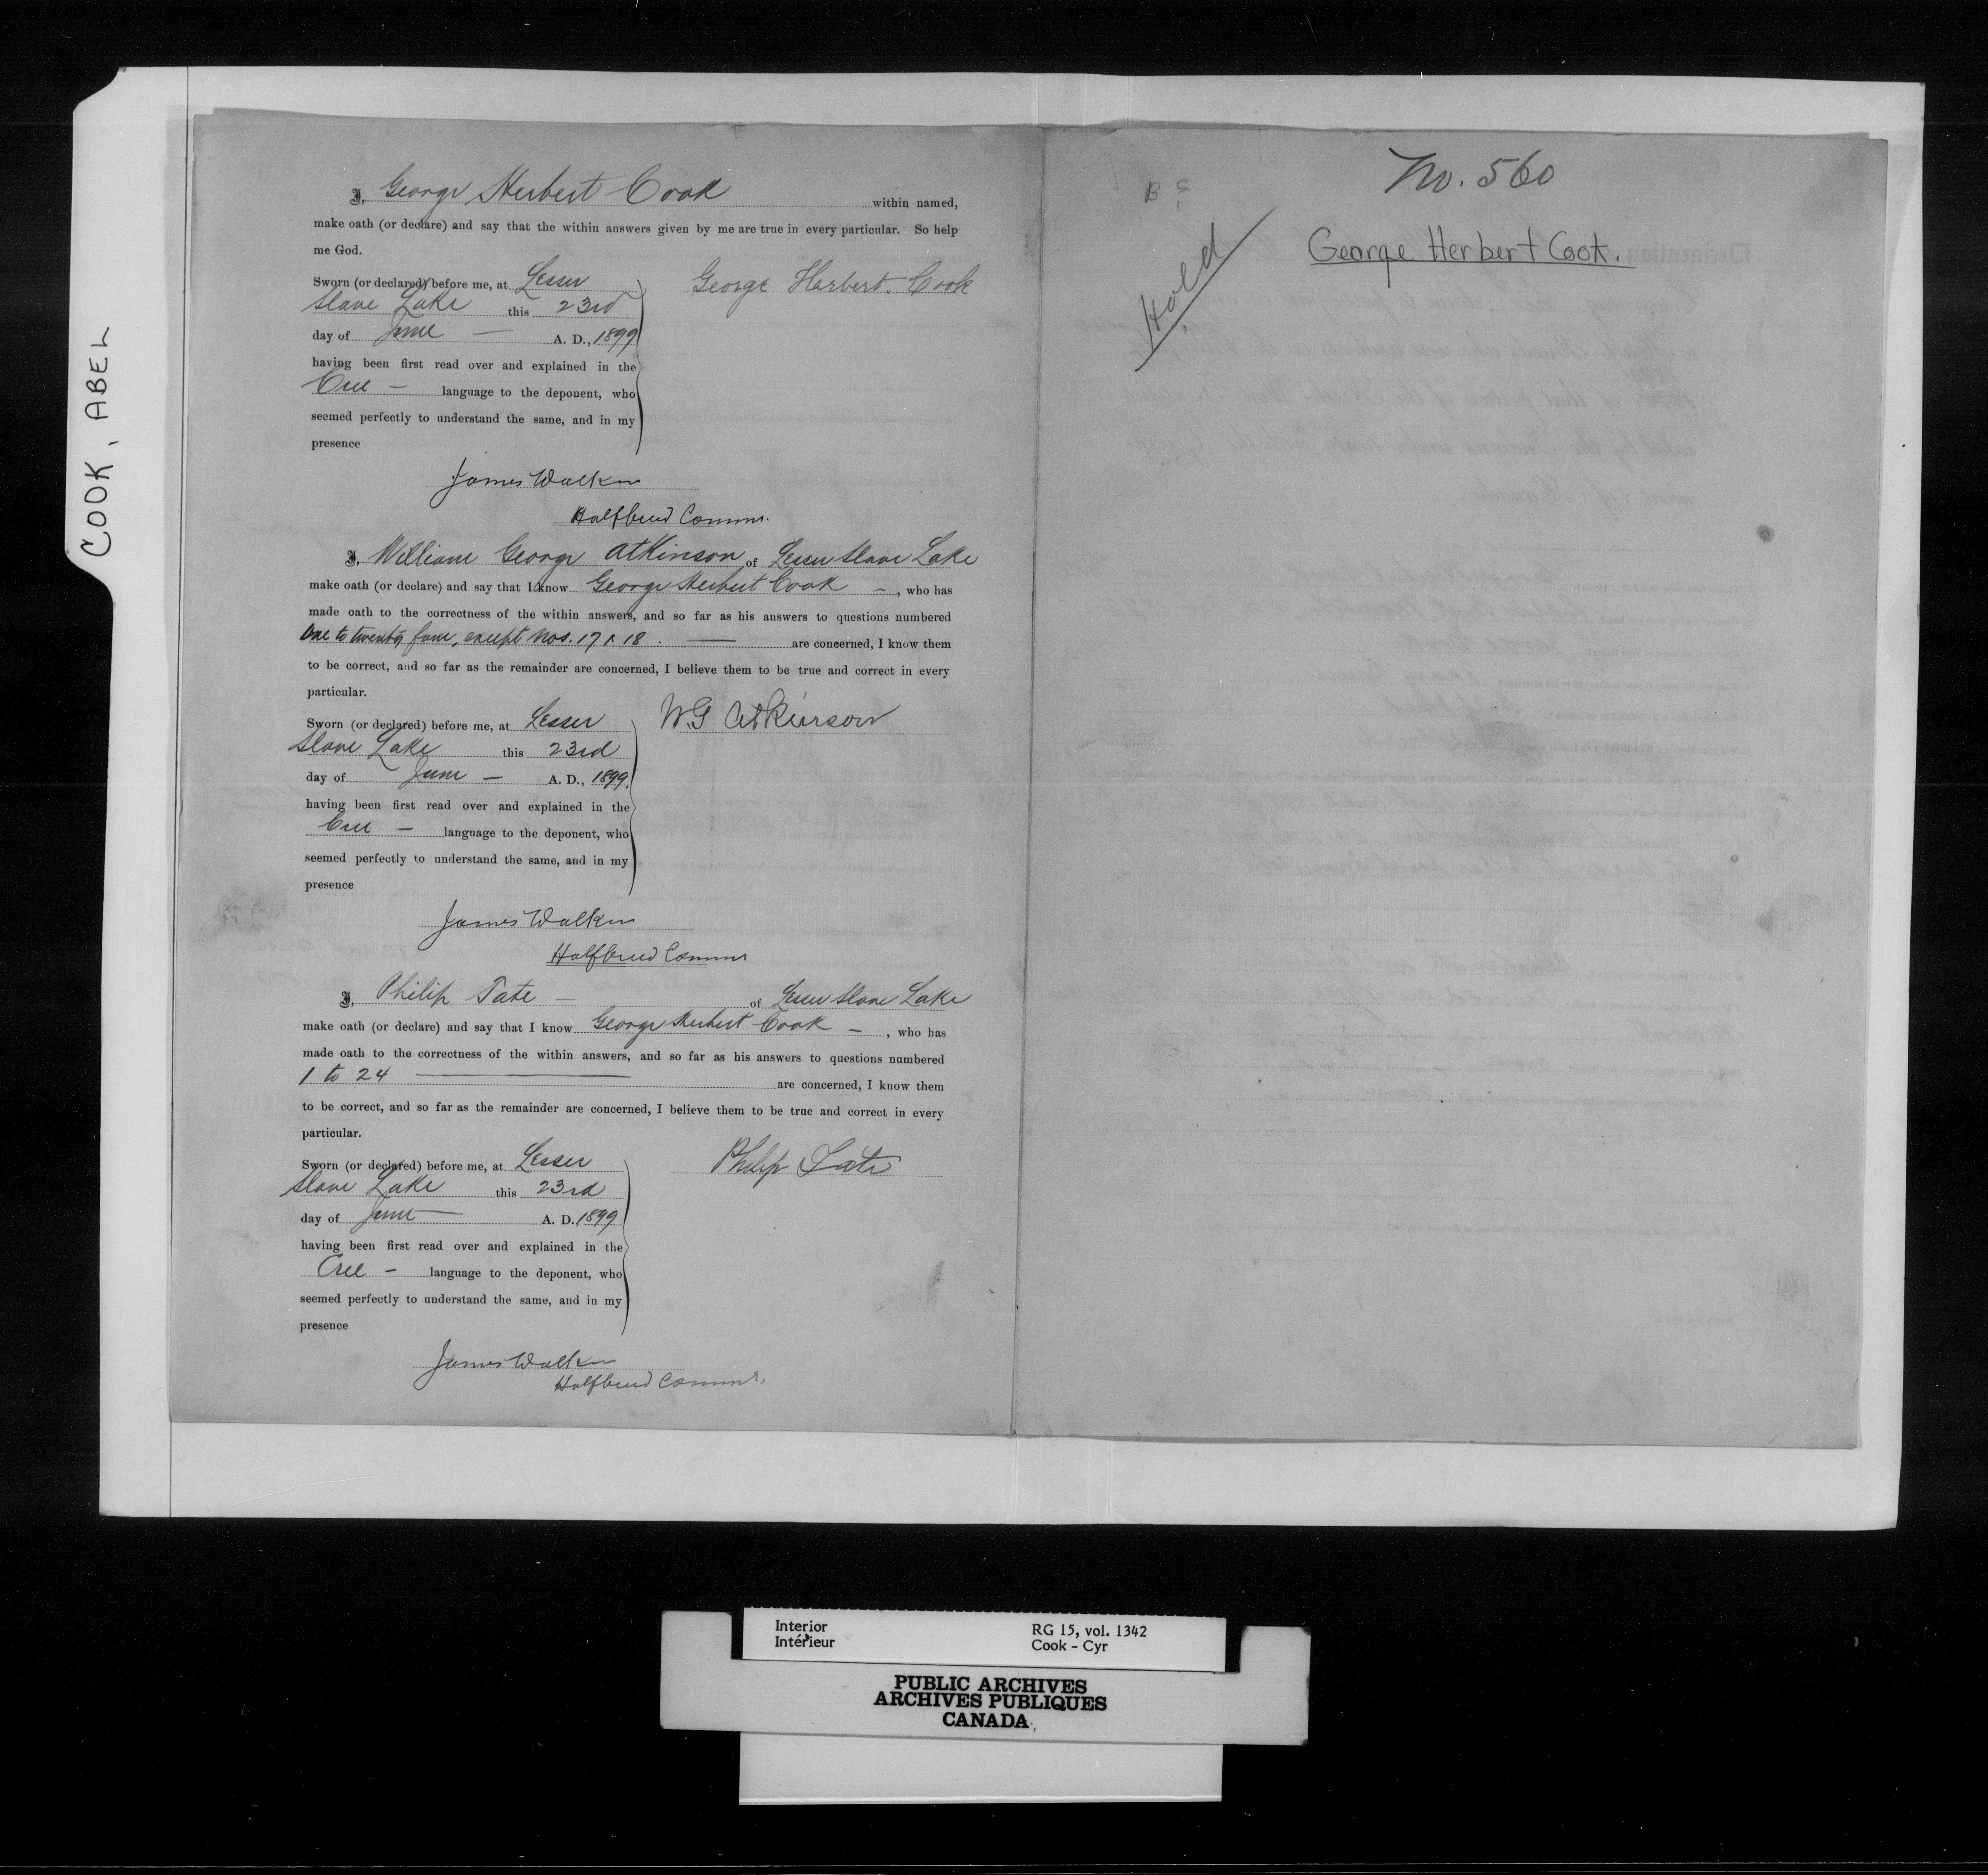 COOK, ABEL
I, George Herbert Cook within named,
make oath (or declare) and say that the within answers given by me are true in every particular. So help
me God.
Sworn (or declared) before me, at Lesser
Slave Lake this 23rd
day of June — A. D., 1899
having been first read over and explained in the
Cree — language to the deponent, who
seemed perfectly to understand the same, and in my
presence
George Herbert. Cook
James Walker
Halfbreed Commr.
I, William George Atkinson of Lesser Slave Lake
make oath (or declare) and say that I know George Herbert Cook —, who has
made oath to the correctness of the within answers, and so far as his answers to questions numbered
One to twenty four, except Nos. 17 & 18. — are concerned, I know them
to be correct, and so far as the remainder are concerned, I believe them to be true and correct in every
particular.
Sworn (or declared) before me, at Lesser
Slave Lake this 23rd
day of June — A. D., 1899.
having been first read over and explained in the
Cree — language to the deponent, who
seemed perfectly to understand the same, and in my
presence
W.G Atkinson
James Walker
Halfbreed Commr
I, Philip Tate — of Lesser Slave Lake
make oath (or declare) and say that I know George Herbert Cook —, who has
made oath to the correctness of the within answers, and so far as his answers to questions numbered
1 to 24 — are concerned, I know them
to be correct, and so far as the remainder are concerned, I believe them to be true and correct in every
particular.
Sworn (or declared) before me, at Lesser
Slave Lake this 23rd
day of June — A. D. 1899
having been first read over and explained in the
Cree — language to the deponent, who
seemed perfectly to understand the same, and in my
presence
Philip Tate
James Walker
Halfbreed Commr.
No. 560
Hold
George Herbert Cook.
Interior
Intérieur
RG 15, vol. 1342
Cook - Cyr
PUBLIC ARCHIVES
ARCHIVES PUBLIQUES
CANADA